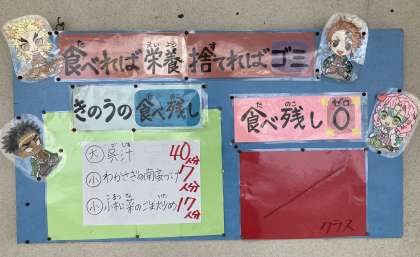 食べれば栄養捨てればゴミ
きのうの食べ残し
食べ残し0
大 呉汁 40人分
小 わかさぎの南蛮づけ 7人分
小 小松菜のごま炒め 17人分
クラス